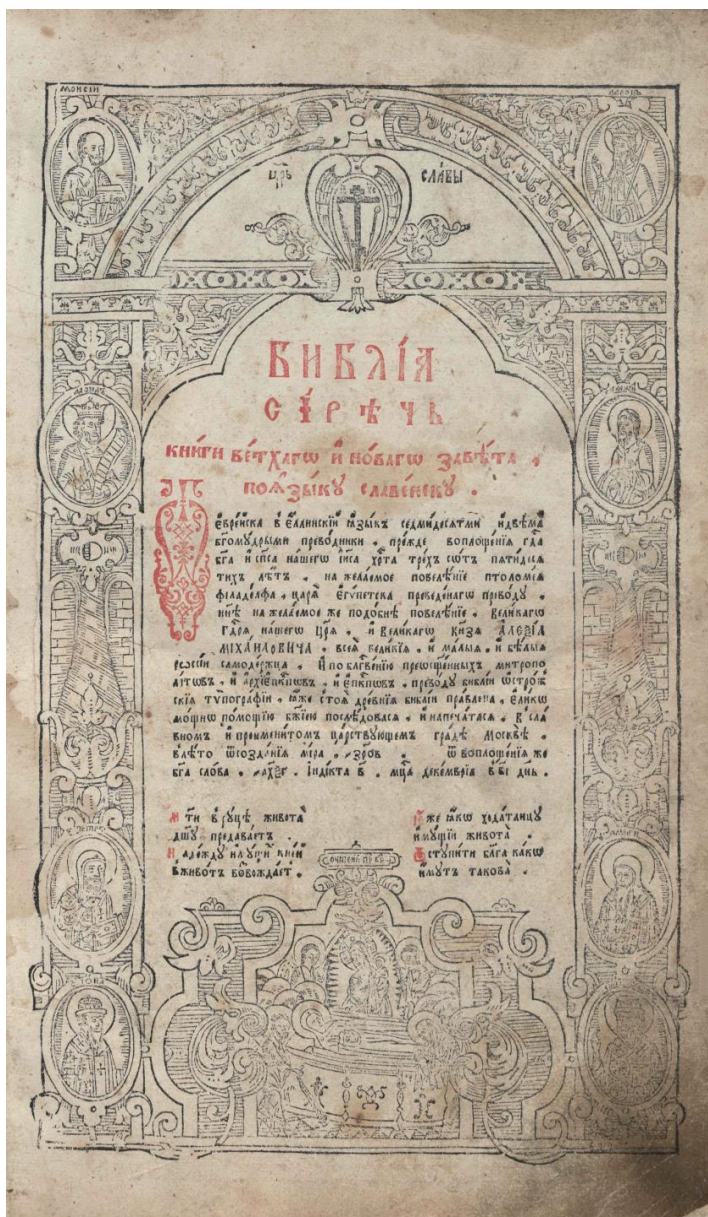 МОИСІИ
ААРОНЪ
ЦРЬ СЛАВЫ
ІС ХС
БИБЛІА
СИРѢЧЬ
КНИГИ ВЕ́ТХАГѠ И НО́ВАГѠ ЗАВѢ́ТА .
ПОѦЗЫ́КУ СЛАВЕ́НСКУ .
Ѿ Евре́йска в Е́ллинскїй ѧ҆зы́къ седмидесѧтми и҆двѣма̀
бг҃омꙋдрыми прево́дники , пре́жде воплоще́нїѧ гд҃а
бг҃а и҆ сп҃са нашегѡ і҆и҃са хр҃та̀ трехъ̀ со́тъ пѧтидесѧ
тихъ лѣ́тъ , на жела́емое повелѣ́нїе птоломе́ѧ
фїладе́лфа , царѧ̀ Е҆гѵ́петска преведе́нагѡ прево́дꙋ .
нн҃ѣ на жела́емое же подо́бнѣ повелѣ́нїе , вели́кагѡ
гдⷭ҇рѧ на́шегѡ цр҃ѧ̀ , и҆ вели́кагѡ кн҃зѧ АЛЕѮІА
МІХАИЛОВИЧА , всеѧ̀ вели́кїѧ , и҆ ма́лыѧ , и҆ бѣ́лыѧ
рѡссі́и самоде́ржца , И҆ по блг҃ве́нїю преѡсщ҃е́нныхъ митропо
ли́тѡвъ , и҆ а҆рхїе҆пⷭ҇кпѡвъ , и҆ е҆пⷭ҇кпѡвъ , прево́дꙋ би́блїи ѡ҆стро́ж
скїѧ тѷпогра́фїи , ꙗ҆́же стоѧ̀ дре́внїѧ би́блїи пра́влена , е҆ли́кѡ
мо́щнѡ по́мощїю бж҃їею послѣ́довасѧ , и҆ напеча́тасѧ , в сла́
вномъ и҆ преимени́томъ ца́рствꙋющемъ гра́дѣ Москвѣ̀ .
в лѣ́то ѿ созда́нїѧ ми́ра , ҂зро҃в . ѿ воплоще́нїѧ же
бг҃а сло́ва , ҂ахѯ҃г . Індїкта в҃ . мцⷭ҇а деке́мврїа в҃ в҃і дн҃ь .
М҃ти в рꙋцѣ̀ живота̀
дш҃ꙋ предава́етъ .
в живо́тъ во́звожда́ет .
же ꙗ҆́кѡ хода́таицꙋ
и҆мꙋ́щїи живота̀ .
и҆мꙋтъ такова̀ .
ПЕТРЪ